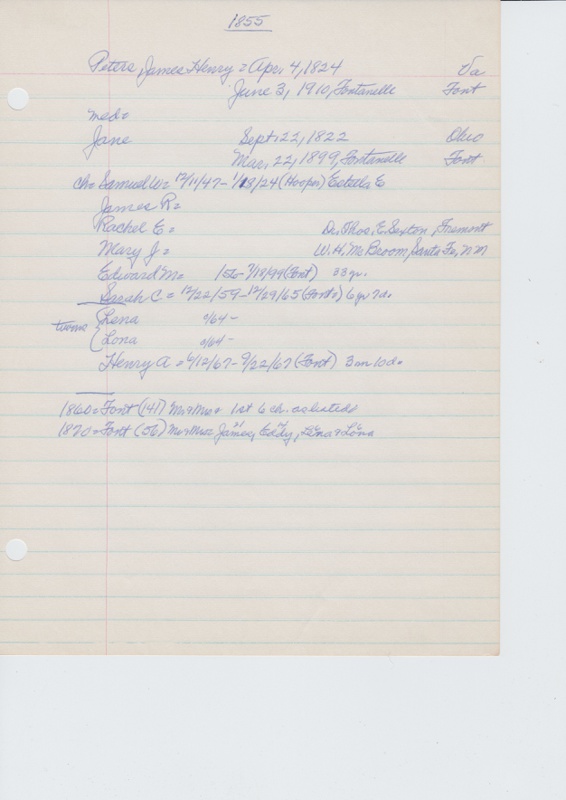 1855
Peters, James Henry = Apr. 4, 1824 Va
June 3, 1910, Fontanelle Font
med=
Jane Sept. 22, 1822 Ohio
Mar. 22, 1899, Fontanelle Font
ch= Samuel W= 12/11/47 - (Hooper) Estella E
James R=
Rachel E= Dr. Thos. E. Sexton, Fremont
Mary J= W. H. McBroom, Santa Fe, NM
Edward M= 7/19/99 (Font) 38 yr.
Sarah C = 12/22/59 - 12/29/65 (Font) 6 yr 7 d.
twins { Lena 0/64 -
Lona 0/64 -
Henry A = 6/12/67 - 9/22/67 (Font) 3 m 10 d.
1860= Font (141) Mr & Mrs= 1st 6 ch. as listed
1870= Font (56) Mr & Mrs= James, Eddy, Lena & Lona